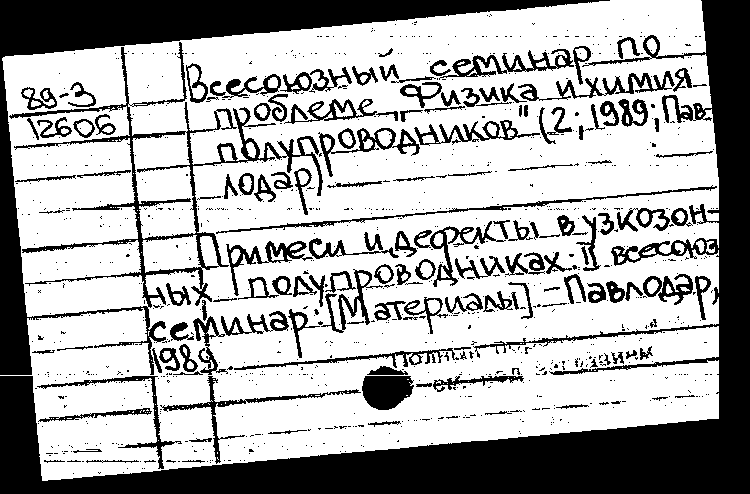 89-3
12606
Всесоюзный семинар по
проблеме "Физика и химия
полупроводников" (2; 1989; Пав-
лодар)
Примеси и дефекты в узкозон-
ных полупроводниках: II всесоюз
семинар: [Материалы] - Павлодар,
1989
Полный
см. под заглавием